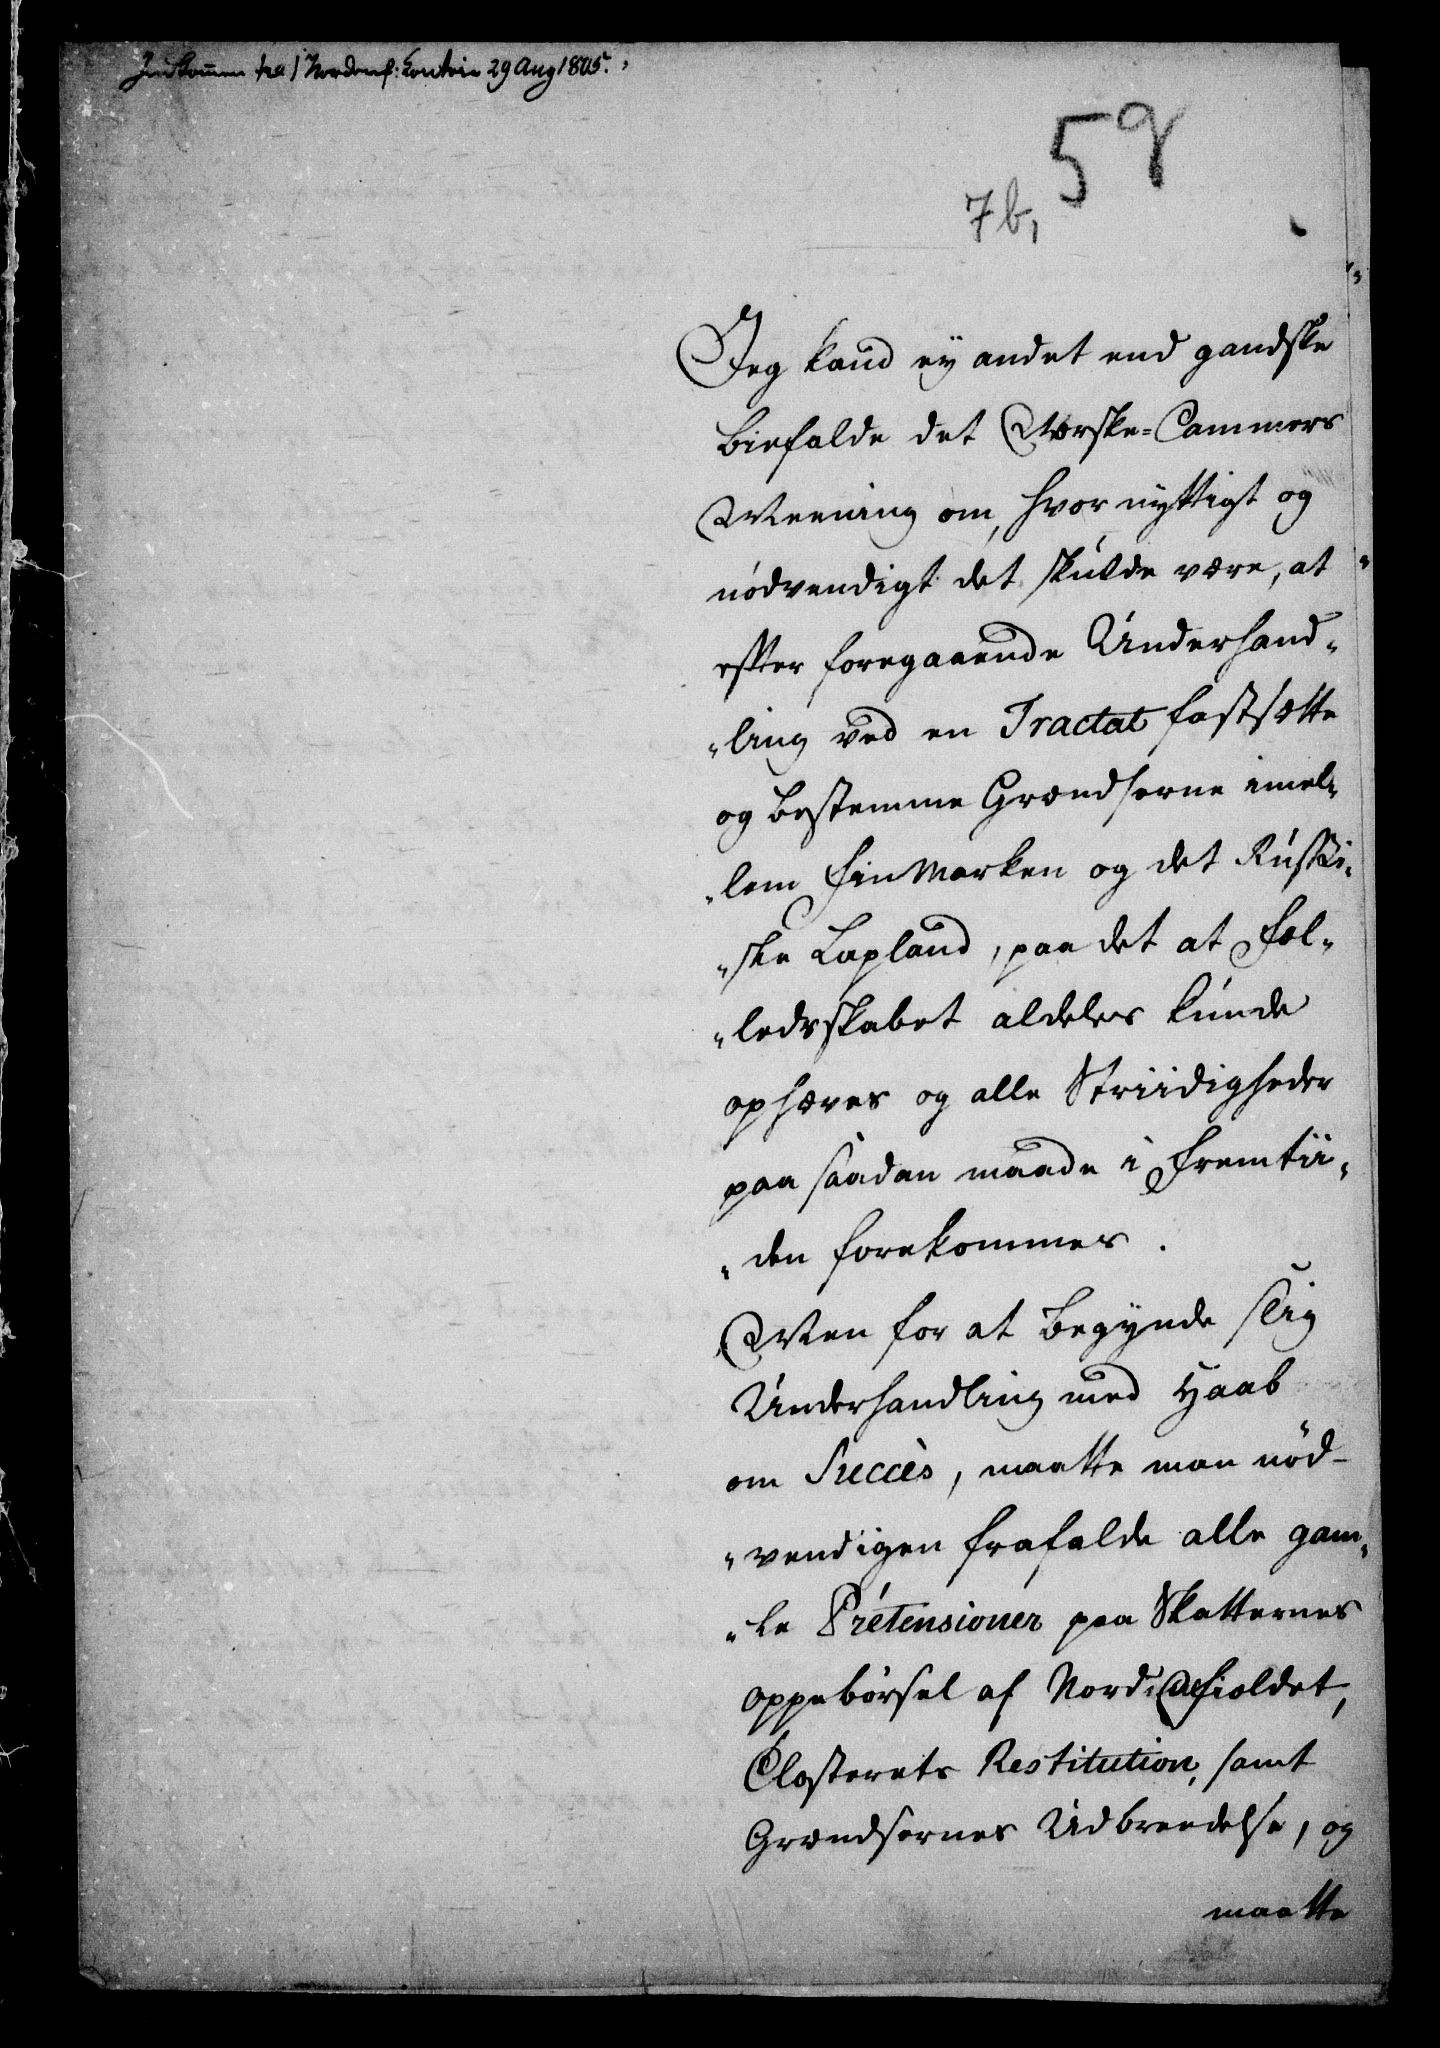 Indkommen til 1 Nordenf: Contoir 29 Aug 1805.
59
7b,
Jeg kand ey andet end gandske
biefalde det Norske-Cammers
Meening om, hvor nyttigt og
nödvendigt det skulde være, at
efter foregaaende Underhand-
-ling ved en Tractat fastsætte
og bestemme Grændserne imel-
-lem FinMarken og det Russi-
-ske Lapland, paa det at Fæl-
-ledsskabet aldeles kunde
ophæves og alle Striidigheder
paa saadan maade i Fremtii-
-den forekommes.
Men for at begynde slig
Underhandling med Haab
om Succès, maatte man nöd-
-vendigen frafalde alle gam-
-le Prétensioner paa Skatternes
oppebörsel af Nordi Fieldet,
Closterets Restitution, samt
Grændsernes Udbreedelse, og
maatte